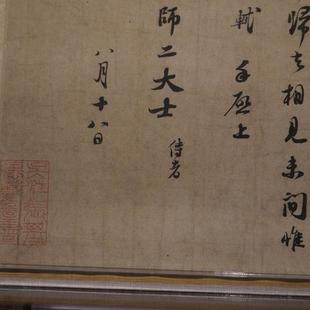 歸去相見未間惟
軾手啟上
師二大士 侍者
八月十八日